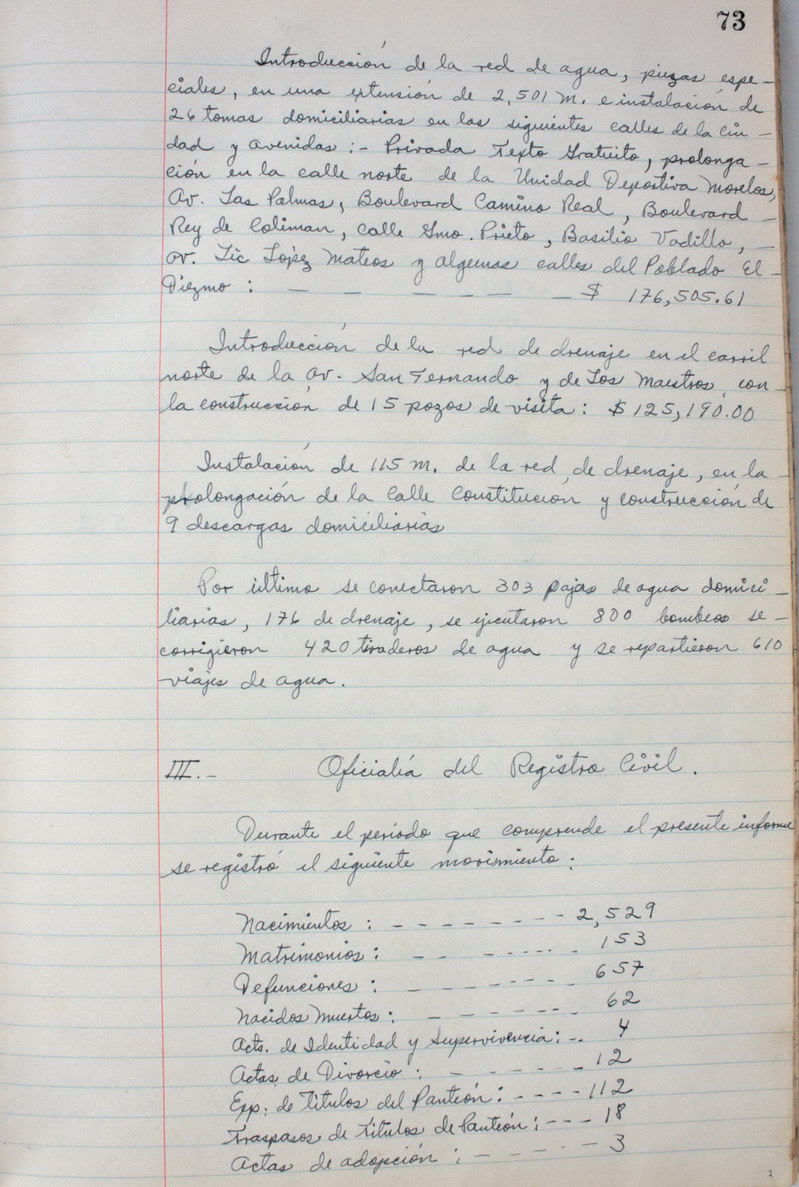 73
Introducción de la red de agua, piezas espe-
ciales, en una extensión de 2,501 m. e instalación de
26 tomas domiciliarias en las siguientes calles de la ciu-
dad y avenidas :- Privada Texto Gratuito, prolonga-
ción en la calle norte de la Unidad Deportiva Morelos,
Av. Las Palmas, Boulevard Camino Real, Boulevard -
Rey de Coliman, calle Gmo. Prieto, Basilio Vadillo, -
Av. Lic López Mateos y algunas calles del Poblado El -
Diezmo : - - - - - - $ 176,505.61
Introducción de la red de drenaje en el carril
norte de la Av. San Fernando y de Los Maestros, con
la construcción de 15 pozos de visita: $125,190.00
Instalación de 115 m. de la red de drenaje, en la -
prolongación de la Calle Constitución y construcción de
9 descargas domiciliarias
Por último se conectaron 303 pajas de agua domici-
liarias, 176 de drenaje, se ejecutaron 800 bombeos se -
corrigieron 420 tiraderos de agua y se repartieron 610
viajes de agua.
III.- Oficialía del Registro Civil.
Durante el período que comprende el presente informe
se registró el siguiente movimiento:
Nacimientos : - - - - - - - - 2,529
Matrimonios : - - - - - - - 153
Defunciones : - - - - - - - 657
Nacidos Muertos : - - - - - - 62
Acts. de Identidad y Supervivencia: -. 4
Actas de Divorcio : - - - - - 12
Exp. de Títulos del Panteón : - - - - 112
Traspasos de Títulos de Panteón : - - - 18
Actas de adopción : - - - - - - 3